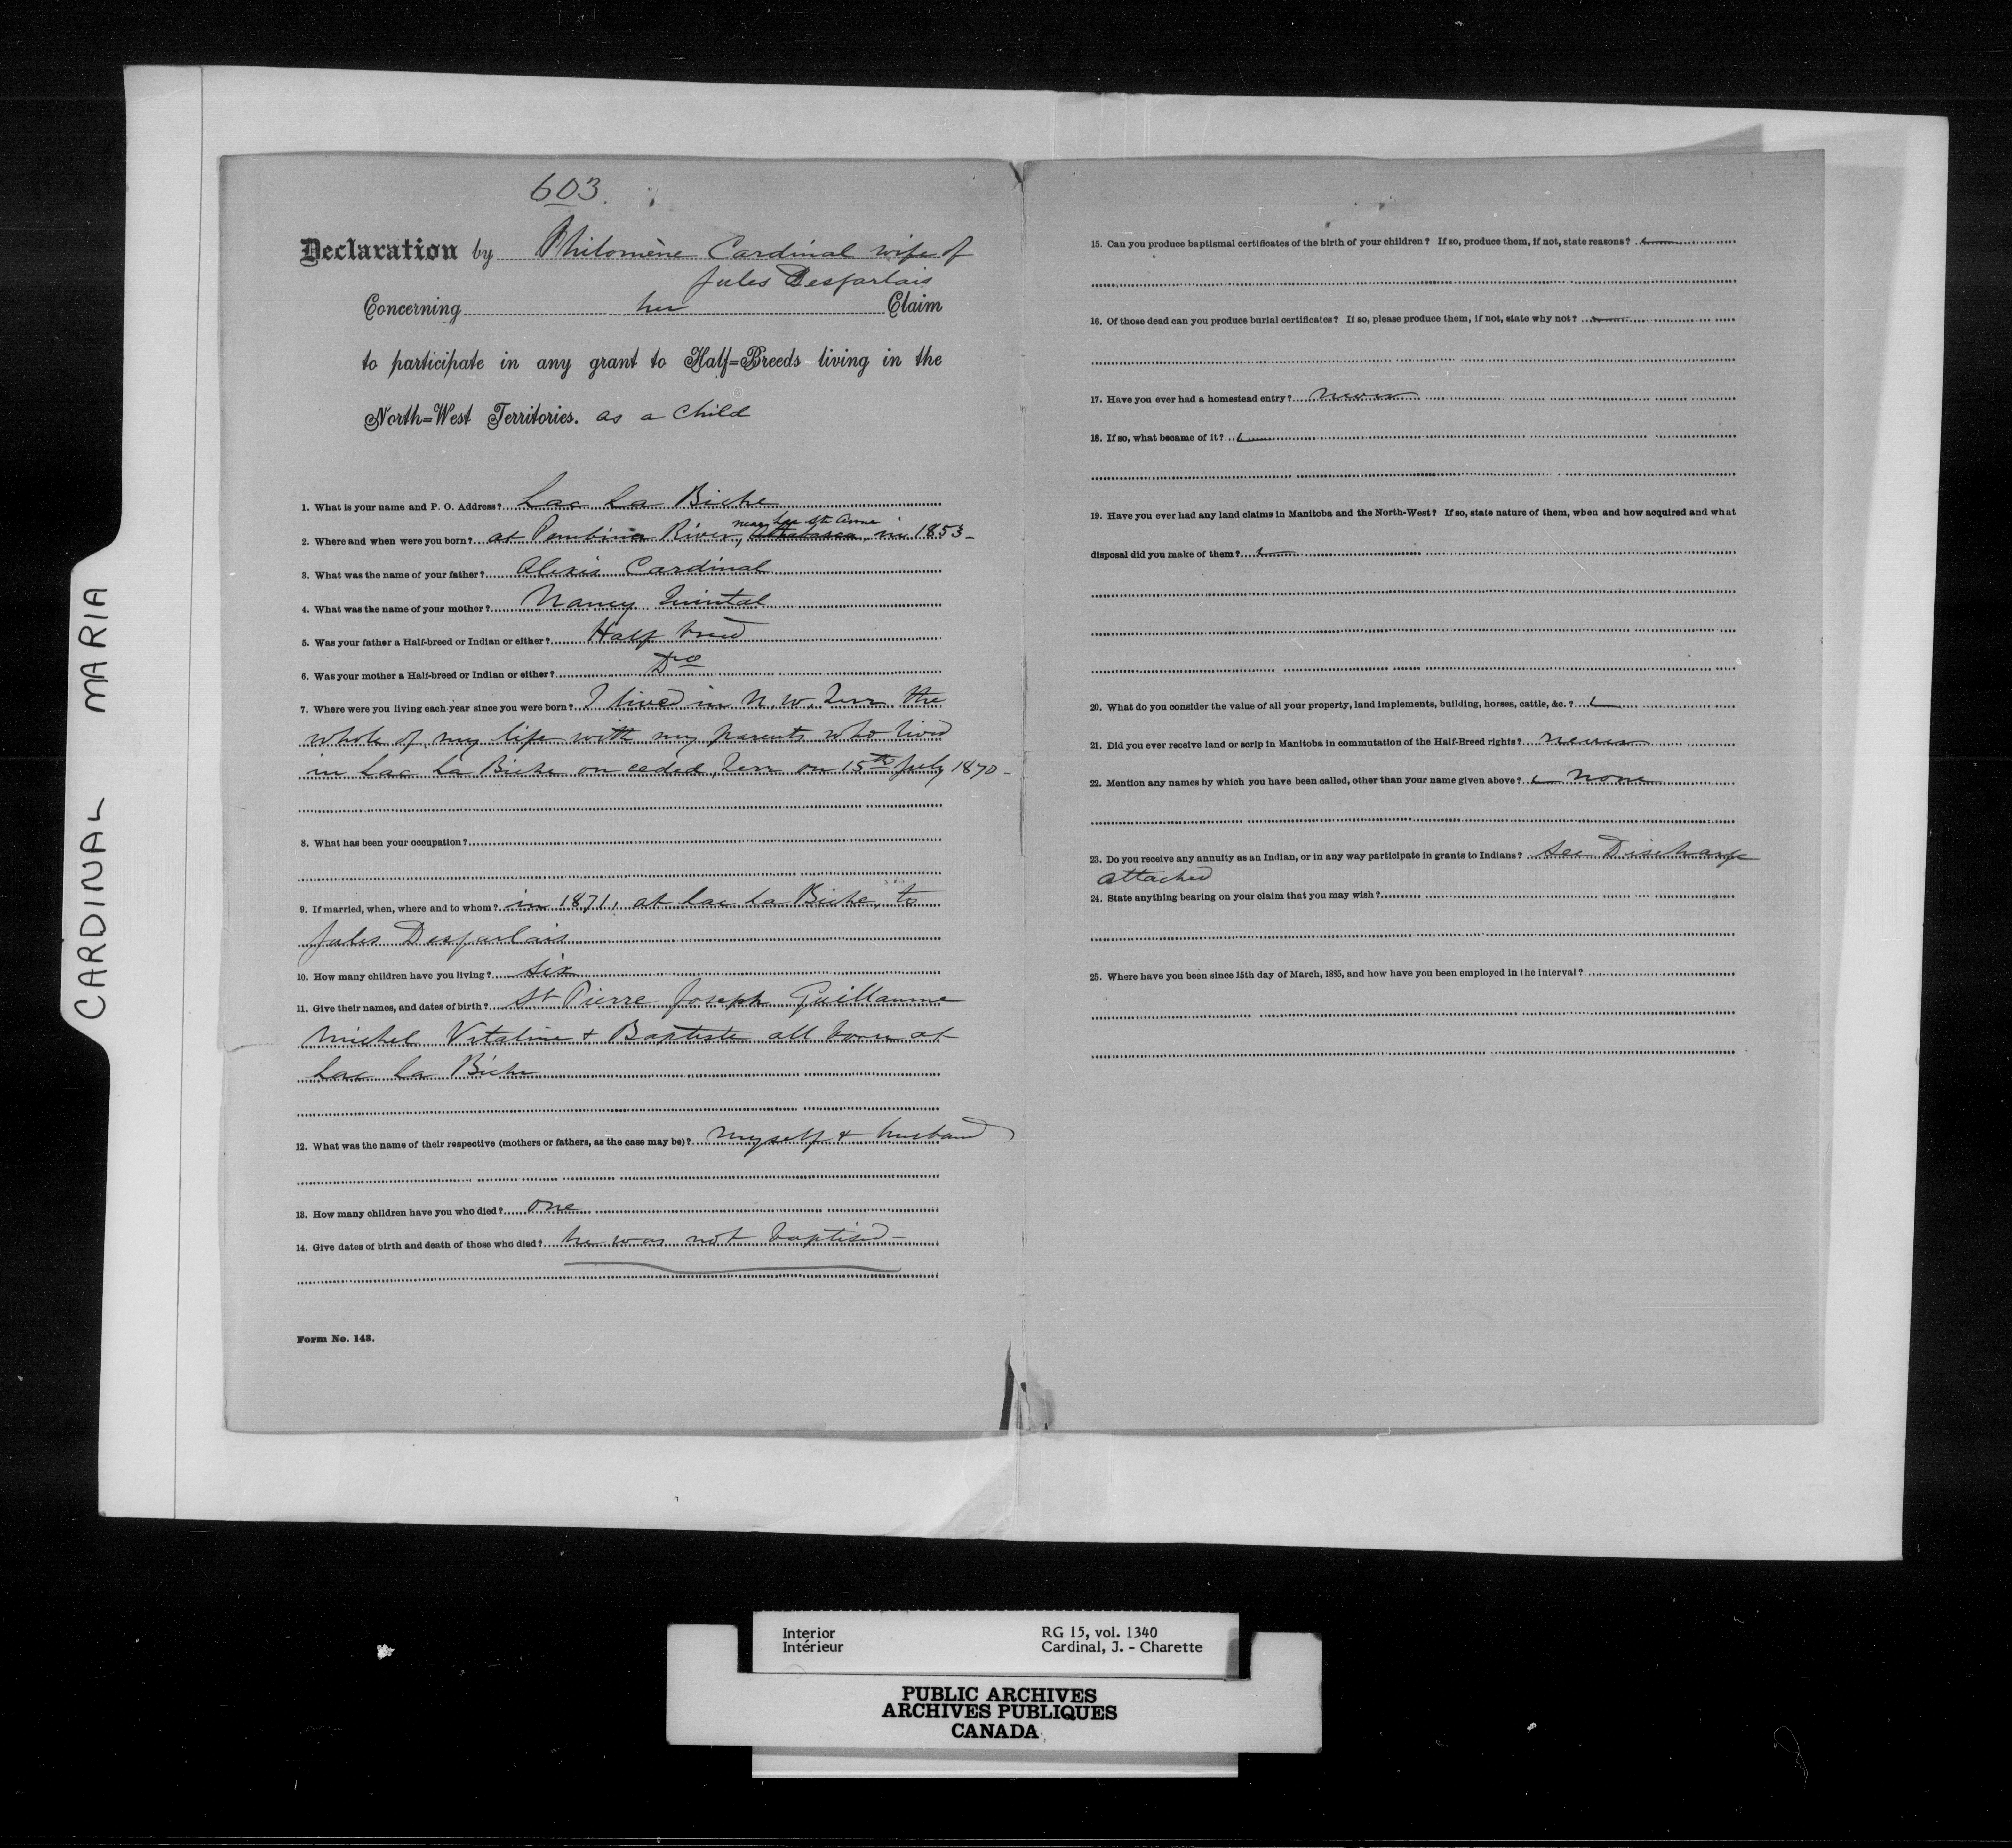 CARDINAL MARIA
603.
Declaration by Philomène Cardinal wife of
Jules Desjarlais
Concerning her Claim
to participate in any grant to Half=Breeds living in the
North=West Territories. as a Child
1. What is your name and P. O. Address? Lac La Biche
near Lac Ste Anne
2. Where and when were you born? at Pembina River, Athabasca in 1853-
3. What was the name of your father? Alexis Cardinal
4. What was the name of your mother? Nancy
5. Was your father a Half-breed or Indian or either? Half breed
6. Was your mother a Half-breed or Indian or either? Do
7. Where were you living each year since you were born? I lived in N. W. Terr the
whole of my life with my parents who lived
in Lac La Biche on ceded Terr on 15th July 1870-
8. What has been your occupation?
9. If married, when, where and to whom? in 1871, at Lac La Biche, to
Jules Desjarlais
10. How many children have you living? Six
11. Give their names, and dates of birth? St Pierre Joseph Guillaume
Michel Vitaline & Baptiste all born at
Lac La Biche
12. What was the name of their respective (mothers or fathers, as the case may be)? myself & husband
13. How many children have you who died? one
14. Give dates of birth and death of those who died? he was not baptised-
Form No. 143.
15. Can you produce baptismal certificates of the birth of your children? If so, produce them, if not, state reasons?
16. Of those dead can you produce burial certificates? If so, please produce them, if not, state why not?
17. Have you ever had a homestead entry? never
18. If so, what became of it?
19. Have you ever had any land claims in Manitoba and the North-West? If so, state nature of them, when and how acquired and what
disposal did you make of them?
20. What do you consider the value of all your property, land implements, building, horses, cattle, &c.?
21. Did you ever receive land or scrip in Manitoba in commutation of the Half-Breed rights? never
22. Mention any names by which you have been called, other than your name given above? none
23. Do you receive any annuity as an Indian, or in any way participate in grants to Indians? See Discharge
attached
24. State anything bearing on your claim that you may wish?
25. Where have you been since 15th day of March, 1885, and how have you been employed in the interval?
Interior RG 15, vol. 1340
Intérieur Cardinal, J. - Charette
PUBLIC ARCHIVES
ARCHIVES PUBLIQUES
CANADA